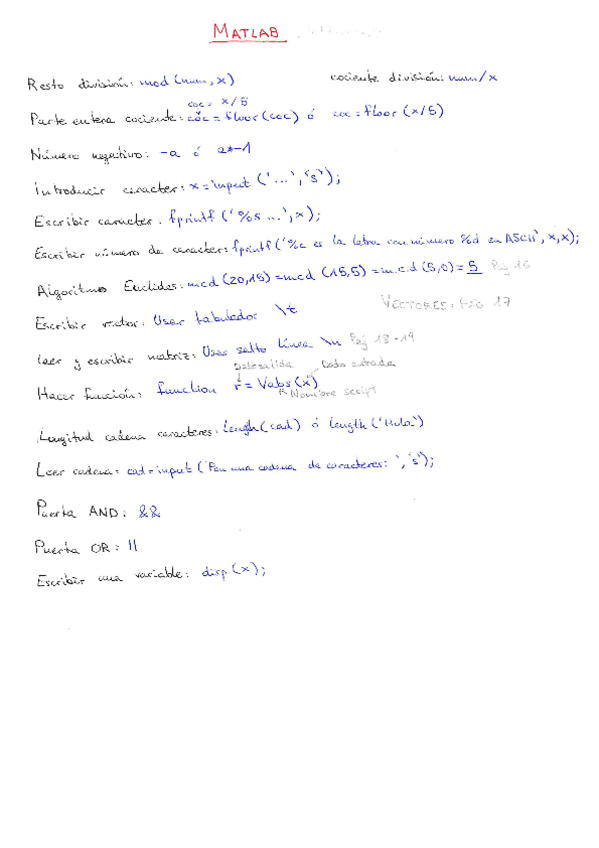 MATLAB
Resto división: mod (num, x) cociente división: num/x
coc = x/5
Parte entera cociente: coc = floor (coc) ó coc = floor (x/5)
Número negativo: -a ó a*-1
Introducir caracter: x = input ('...', 's');
Escribir caracter: fprintf ('%s ...', x);
Escribir número de caracter: fprintf ('%c es la letra con número %d en ASCII', x, x);
Algoritmo Euclides: mcd (20,15) = mcd (15,5) = m.c.d (5,0) = 5 Pág 16
VECTORES: PÁG 17
Escribir vector: Usar tabulador \t
Leer y escribir matriz: Usar salto línea \n Pág 18-19
Dato salida Dato entrada
Hacer función: function r = Vabs (x)
Nombre script
Longitud cadena caracteres: length (cad) ó length ('Hola')
Leer cadena: cad = input ('Pon una cadena de caracteres: ', 's');
Puerta AND: &&
Puerta OR: ||
Escribir una variable: disp (x);